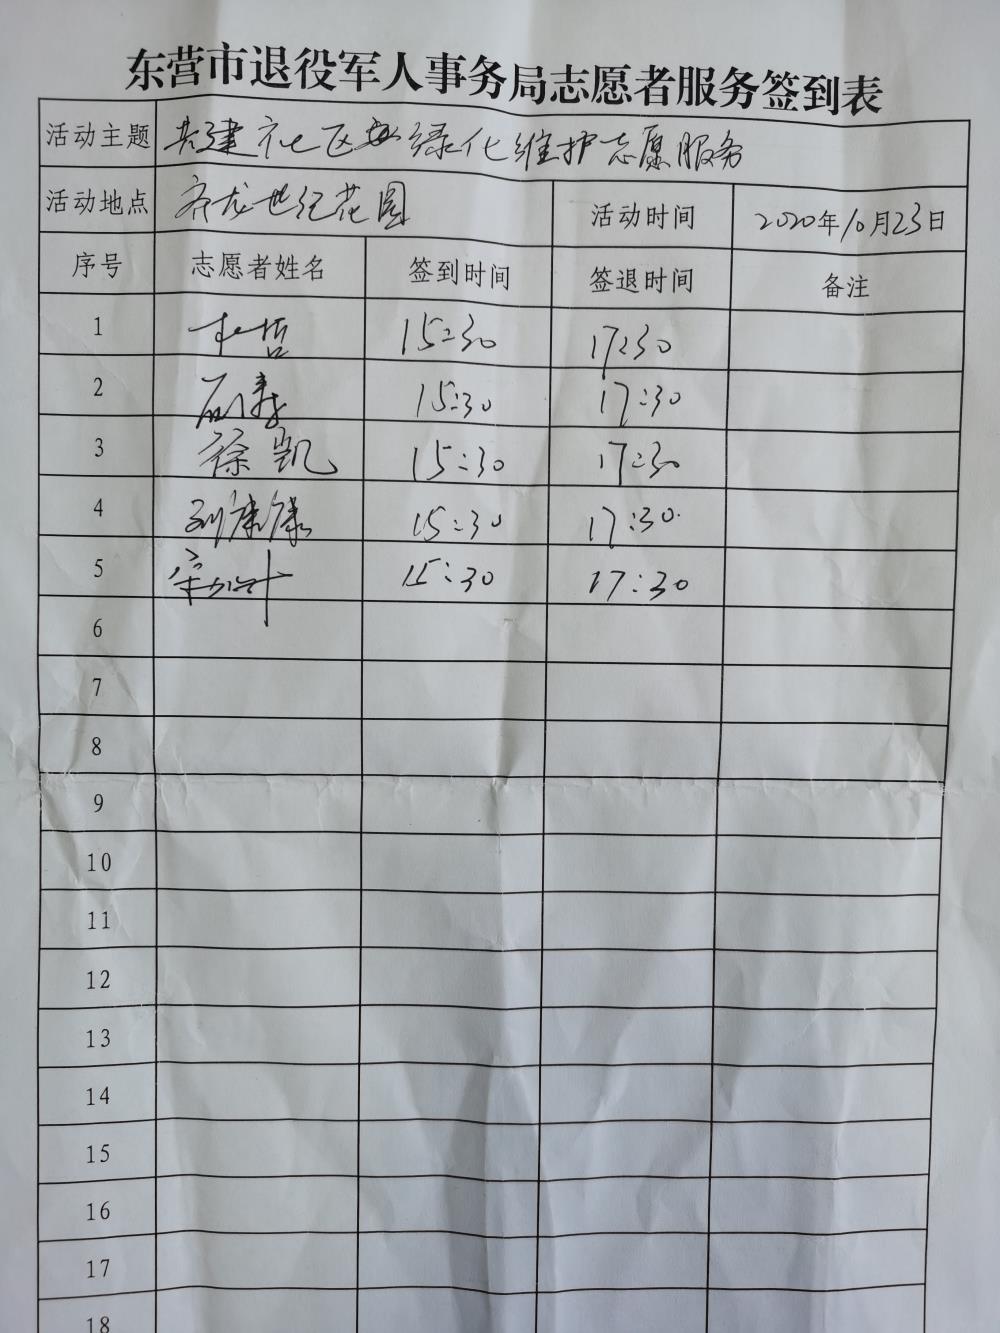 东营市退役军人事务局志愿者服务签到表
活动主题 共建社区 绿化维护志愿服务
活动地点 齐龙世纪花园 活动时间 2020年10月23日
序号 志愿者姓名 签到时间 签退时间 备注
1 15:30 17:30
2 15:30 17:30
3 徐凯 15:30 17:30
4 刘康康 15:30 17:30
5 15:30 17:30
6
7
8
9
10
11
12
13
14
15
16
17
18